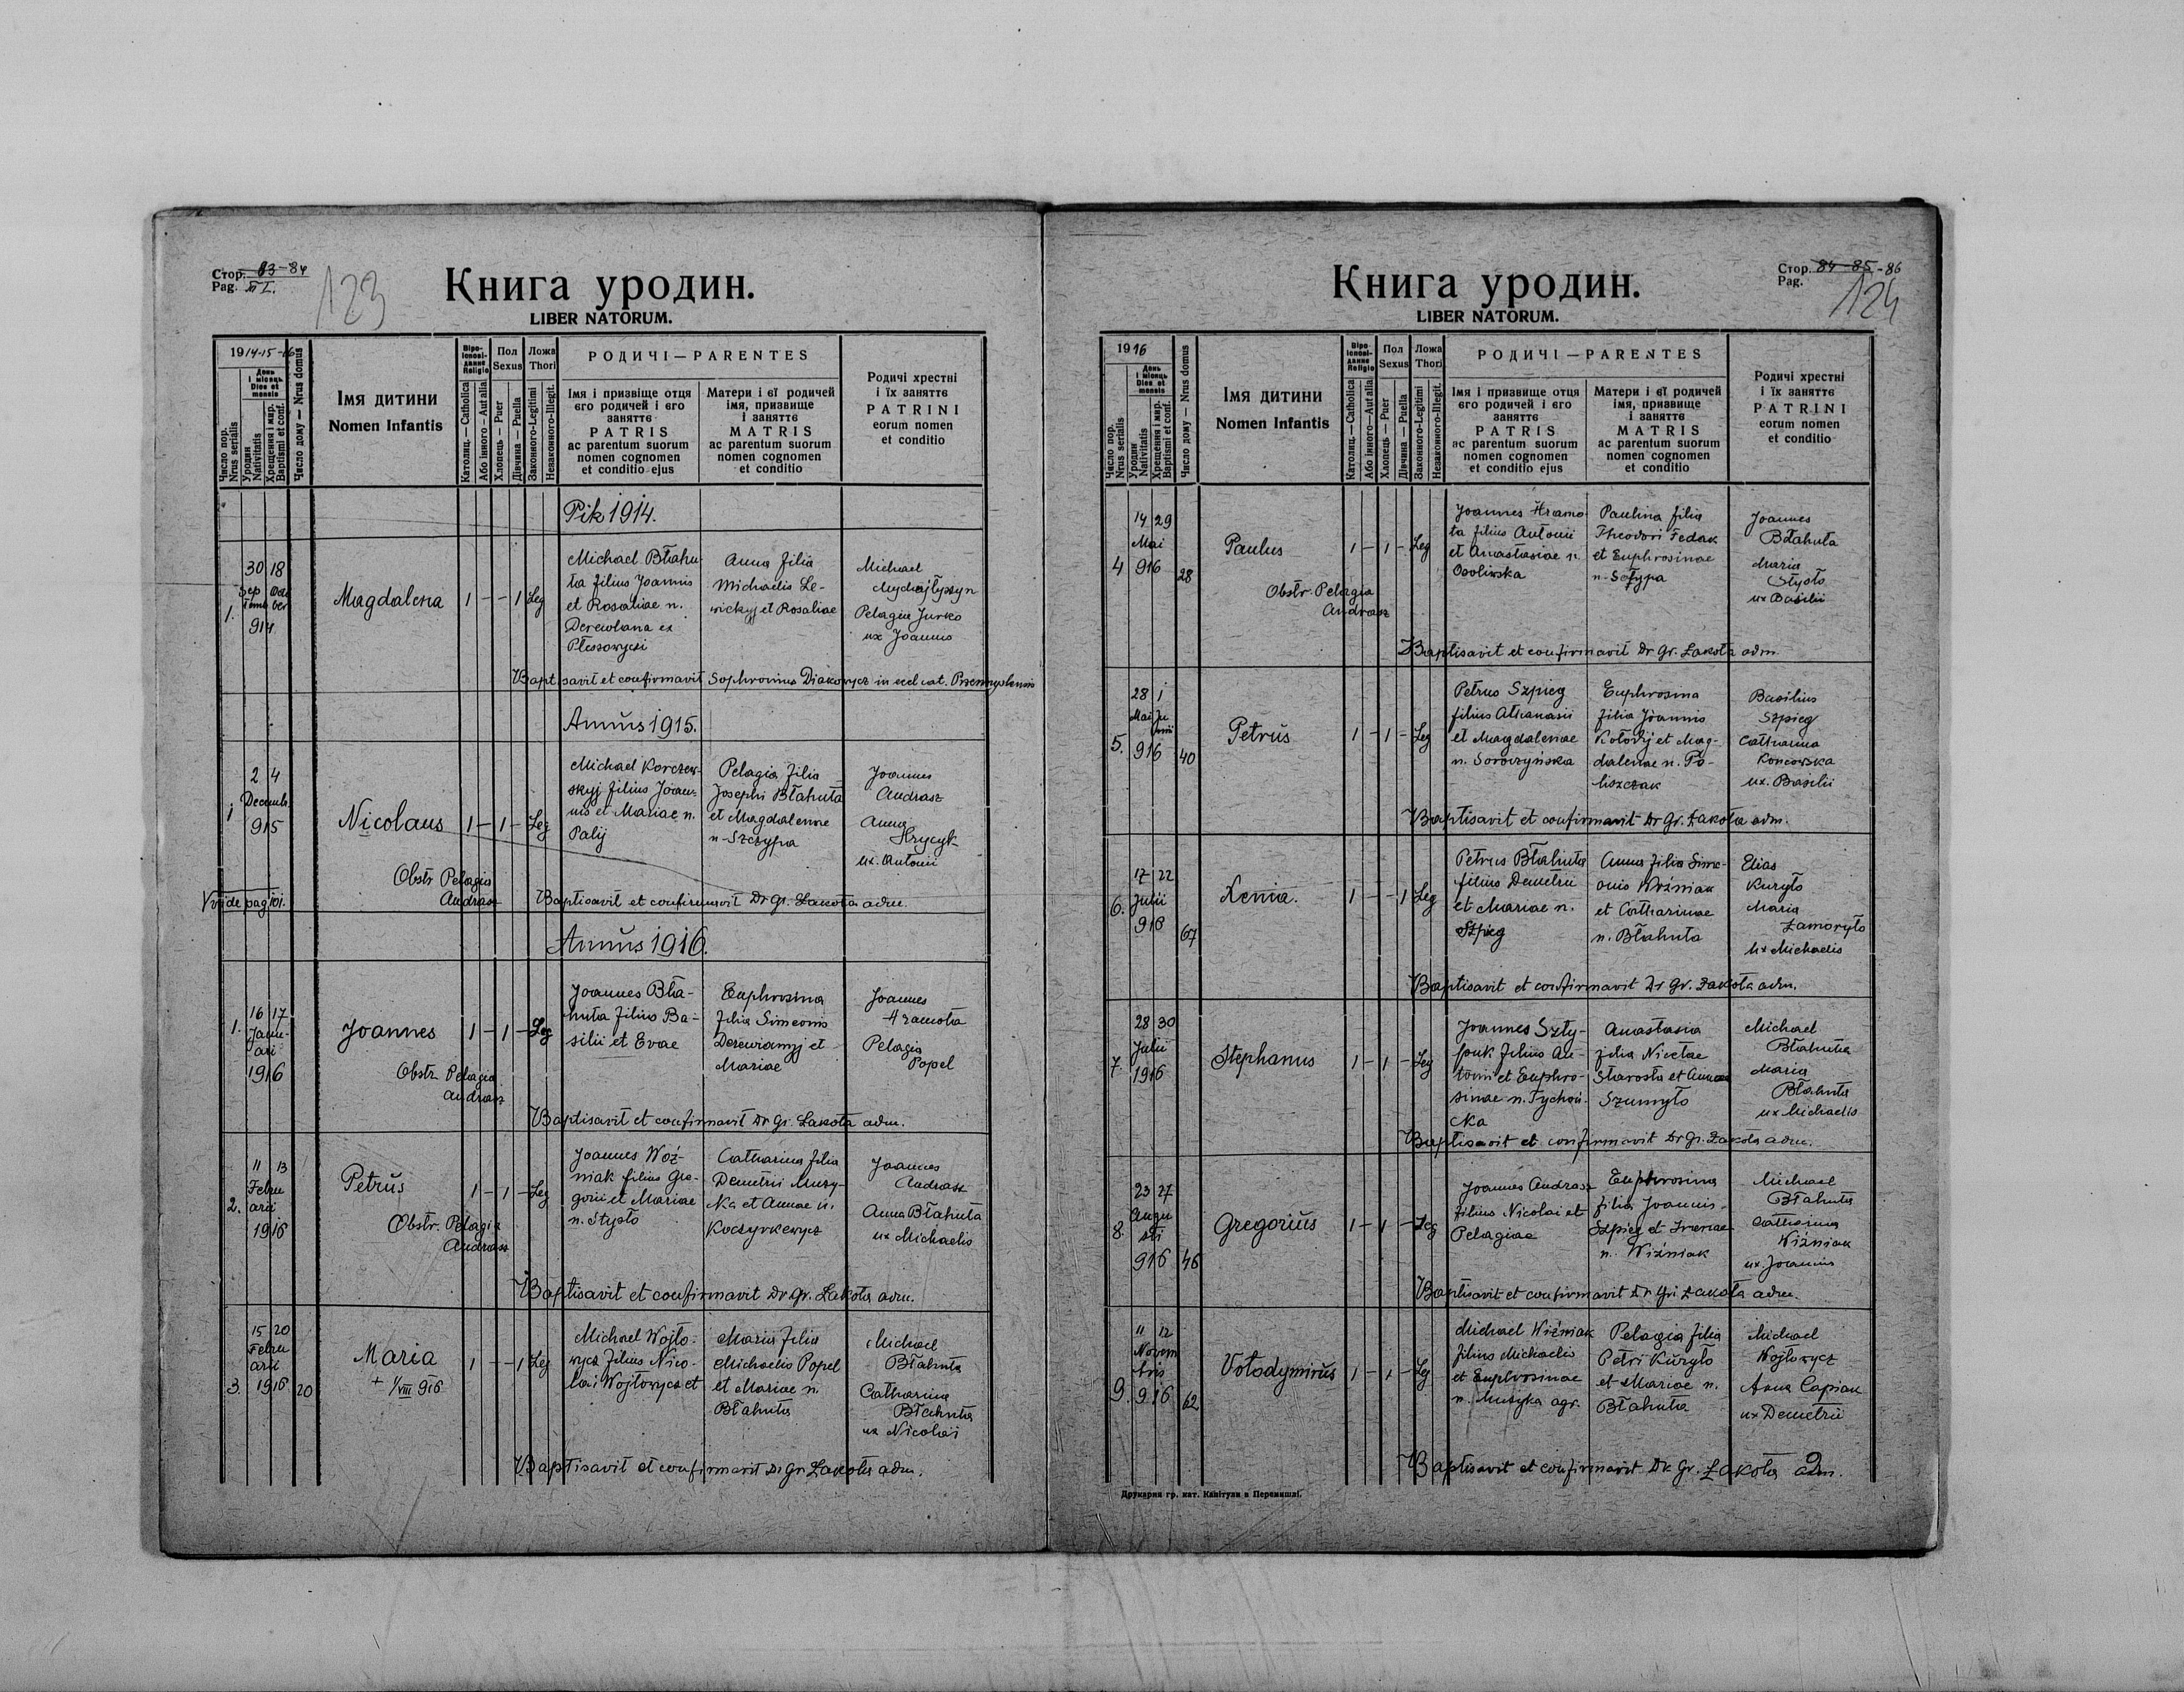 Стор. 83-84
Pag. III I.
123
Книга уродин.
LIBER NATORUM.
1914-15-16
Число пор.
Nrus serialis
День і місяць
Dies et mensis
Уродин
Nativitatis
Хрещення і мир.
Baptismi et conf.
Число дому — Nrus domus
Імя дитини
Nomen Infantis
Віроісповідание
Religio
Католиц. — Catholica
Або інного — Aut alia
Пол
Sexus
Хлопець — Puer
Дівчина — Puella
Ложа
Thori
Законного-Legitimi
Незаконного-Illegit.
РОДИЧІ — PARENTES
Імя і призвіще отця
єго родичей і єго
заняттє
PATRIS
ac parentum suorum
nomen cognomen
et conditio ejus
Матери і єї родичей
імя, призвище
і заняттє
MATRIS
ac parentum suorum
nomen cognomen
et conditio
Родичі хрестні
і їх заняттє
PATRINI
eorum nomen
et conditio
Рік 1914.
1.
30 18
Septemb October
914
Magdalena
1 - - 1 Leg
Michael Błahu-
ta filius Joannis
et Rosaliae n.
Derewlana ex
Płeszowyczi
Anna filia
Michaelis Le-
wickyj et Rosaliae
Michael
Mychajłyszyn
Pelagia Jurko
ux Joannis
Baptisavit et confirmavit Sophronius Diakowycz in eccl cat. Przemyslensis
Annus 1915.
1
2 4
Decemb.
915
Nicolaus
1 - 1 - Leg
Michael Korczew-
skyj filius Joan-
nis et Mariae n.
Palij
Pelagia filia
Josephi Błahuta
et Magdalenae
n-Szczypa
Joannes
Andrasz
Anna
Hrycyk
ux. Antonii
Obstr Pelagia
Andrasz
Vide pag 101.
Baptisavit et confirmavit Dr Gr. Łakota adm.
Annus 1916.
1.
16 17
Janu-
ari
1916
Joannes
1 - 1 - Leg
Joannes Bła-
huta filius Ba-
silii et Evae
Euphrosina
filia Simeonis
Derewianyj et
Mariae
Joannes
Hramota
Pelagia
Popel
Obstr. Pelagia
Andrasz
Baptisavit et confirmavit Dr Gr. Łakota adm.
2.
11 13
Febru
arii
1916
Petrus
1 - 1 - Leg
Joannes Woź-
niak filius Gre-
gorii et Mariae
n. Stysło
Catharina filia
Demetrii Muzy-
ka et Annae n.
Koczyrkewycz
Joannes
Andrasz
Anna Błahuta
ux Michaelis
Obstr. Pelagia
Andrasz
Baptisavit et confirmavit Dr Gr. Łakota adm.
3.
15 20
Febru
arii
1916
20
Maria
+ 1/VIII 916
1 - - 1 Leg
Michael Wojto-
wycz filius Nico-
lai Wojtowycz et
Maria filia
Michaelis Popel
et Mariae n.
Błahuta
Michael
Błahuta
Catharina
Błahuta
ux Nicolai
Baptisavit et confirmavit Dr Gr Łakota adm.
Стор. 84-85-86
Pag.
124
Книга уродин.
LIBER NATORUM.
1916
Число пор.
Nrus serialis
День і місяць
Dies et mensis
Уродин
Nativitatis
Хрещення і мир.
Baptismi et conf.
Число дому — Nrus domus
Імя дитини
Nomen Infantis
Віроісповідание
Religio
Католиц. — Catholica
Або інного — Aut alia
Пол
Sexus
Хлопець — Puer
Дівчина — Puella
Ложа
Thori
Законного-Legitimi
Незаконного-Illegit.
РОДИЧІ — PARENTES
Імя і призвище отця
єго родичей і єго
заняттє
PATRIS
ac parentum suorum
nomen cognomen
et conditio ejus
Матери і єї родичей
імя, призвище
і заняттє
MATRIS
ac parentum suorum
nomen cognomen
et conditio
Родичі хрестні
і їх заняттє
PATRINI
eorum nomen
et conditio
4
14 29
Mai
916
28
Paulus
1 - 1 - Leg
Joannes Hramo-
ta filius Antonii
et Anastasiae n.
Osoliwska
Paulina filia
Theodori Fedak
et Euphrosinae
Joannes
Błahuta
Maria
Stysło
ux Basilii
Obstr. Pelagia
Andrasz
Baptisavit et confirmavit Dr Gr. Łakota adm
5.
28 1
Mai Junii
916
40
Petrus
1 - 1 - Leg
Petrus Szpieg
filius Athanasii
et Magdalenae
n. Soroczyńska
Euphrosina
filia Joannis
Kołodij et Mag-
dalenae n. Po-
liszczak
Basilius
Szpieg
Catharina
Koncowska
ux. Basilii
Baptisavit et confirmavit Dr Gr. Łakota adm.
6.
17 22
Julii
916
67
Xenia.
1 - - 1 Leg
Petrus Błahuta
filius Demetrii
et Mariae n.
Szpieg
Anna filia Sime-
onis Woźniak
et Catharinae
n. Błahuta
Elias
Kuryło
Maria
Zamoryło
ux Michaelis
Baptisavit et confirmavit Dr Gr. Łakota adm.
7.
28 30
Julii
1916
Stephanus
1 - 1 - Leg
Joannes Szty-
puk filius An-
tonii et Euphro-
sinae n. Tychoń-
ka
Anastasia
filia Nicetae
Starosta et Annae
Szumyło
Michael
Błahuta
Maria
Błahuta
ux Michaelis
Baptisavit et confirmavit Dr Gr. Łakota adm.
8.
23 27
Augu
sti
916
46
Gregorius
1 - 1 - Leg
Joannes Andrasz
filius Nicolai et
Pelagiae
Euphrosina
filia Joannis
Szpieg et Irenae
n. Wiźniak
Michael
Błahuta
Catharina
Wiźniak
ux Joannis
Baptisavit et confirmavit Dr Gr Łakota adm.
9.
11 12
Novem
bris
916
62
Vołodymirus
1 - 1 - Leg
Michael Wiźniak
filius Michaelis
et Euphrosinae
n. Muzyka agr.
Pelagia filia
Petri Kuryło
et Mariae n.
Błahuta
Michael
Wojtowycz
Anna Capiak
ux Demetrii
Baptisavit et confirmavit Dr Gr. Łakota adm.
Друкарня гр. кат. Капітули в Перемишлі.